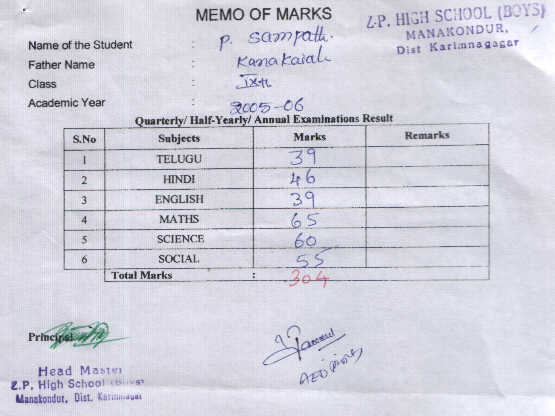 MEMO OF MARKS
Z.P. HIGH SCHOOL (BOYS)
MANAKONDUR,
Dist Karimnagagar
Name of the Student : P. Sampath.
Father Name : Kanakaiah
Class : IXth
Academic Year : 2005-06
Quarterly/ Half-Yearly/ Annual Examinations Result
S.No Subjects Marks Remarks
1 TELUGU 39
2 HINDI 46
3 ENGLISH 39
4 MATHS 65
5 SCIENCE 60
6 SOCIAL 55
Total Marks : 304
Principal
Head Master
Z.P. High School (Boys)
Manakondur, Dist. Karimnagar